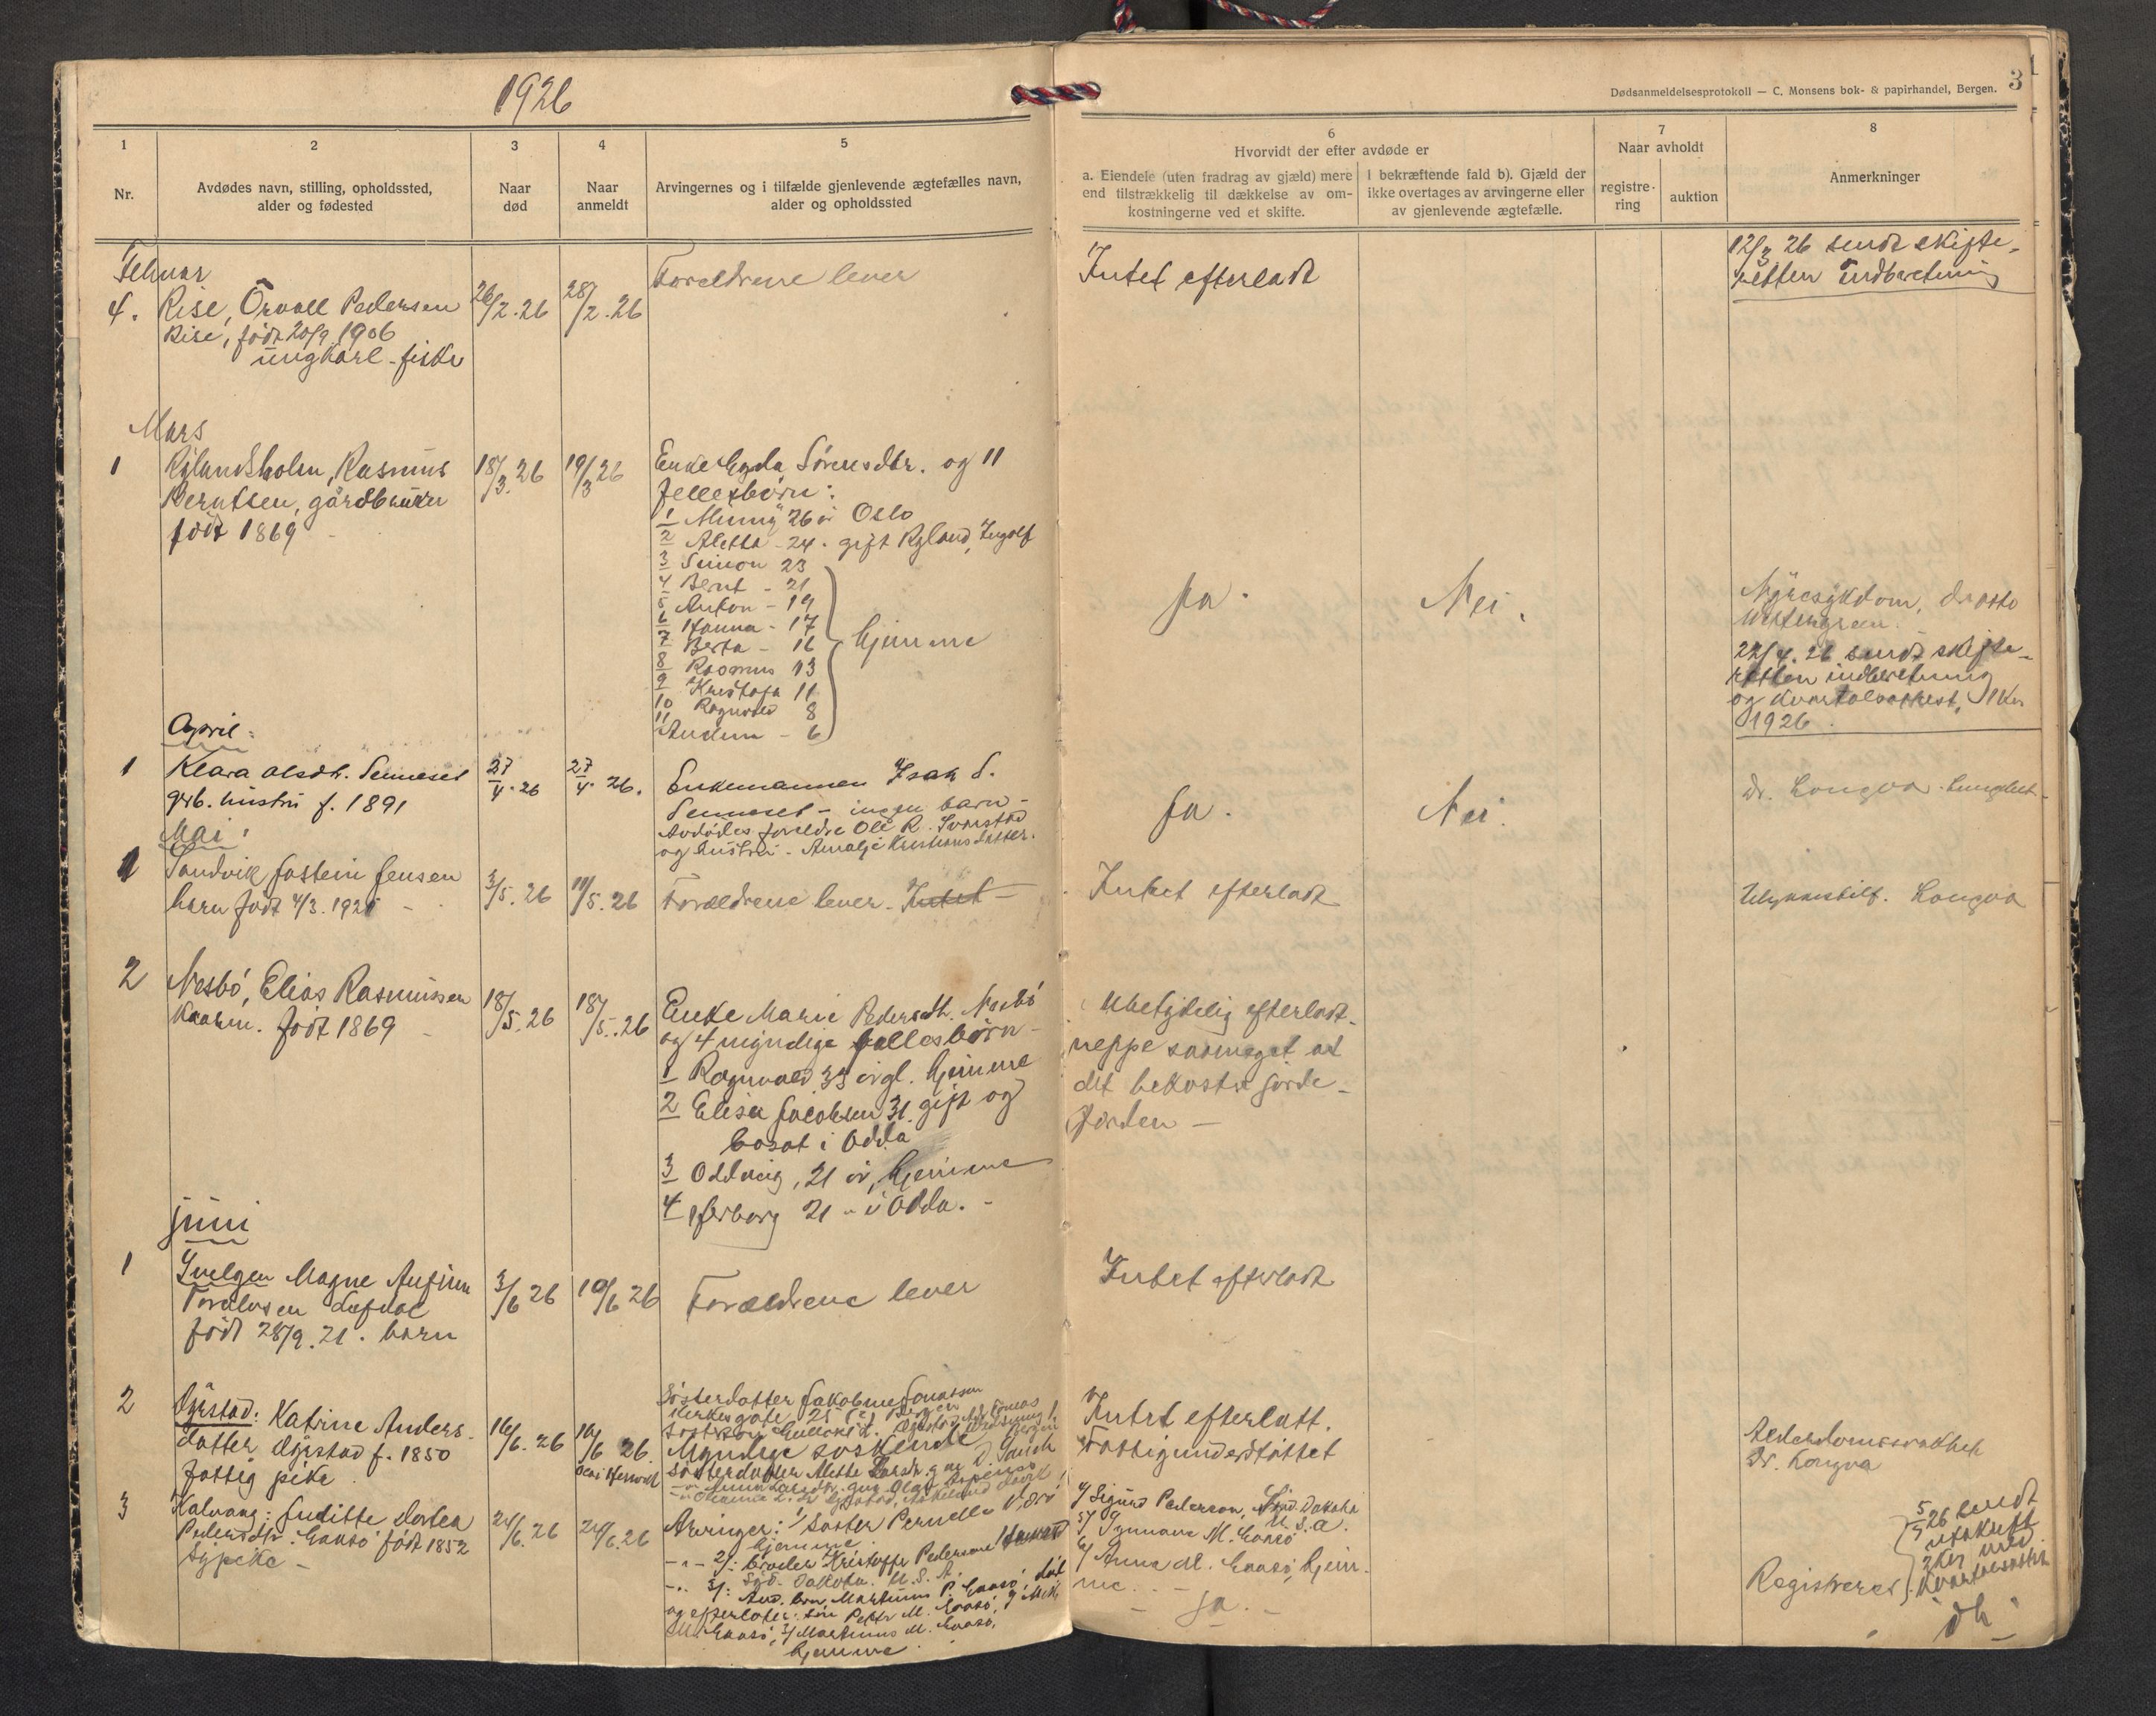 1926
Dødsanmeldelsesprotokoll — C. Monsens bok- & papirhandel, Bergen. 3
1
Nr.
2
Avdødes navn, stilling, opholdssted,
alder og fødested
3
Naar
død
4
Naar
anmeldt
5
Arvingernes og i tilfælde gjenlevende ægtefælles navn,
alder og opholdssted
6
Hvorvidt der efter avdøde er
a. Eiendele (uten fradrag av gjæld) mere
end tilstrækkelig til dækkelse av om-
kostningerne ved et skifte.
I bekræftende fald b). Gjæld der
ikke overtages av arvingerne eller
av gjenlevende ægtefælle.
7
Naar avholdt
registre-
ring
auktion
8
Anmerkninger
Februar
4. Rise, Orvall Pedersen
Rise, født 20/9 1906
ungkarl - fisker
26/2.26
28/2.26
Foreldrene lever
Intet efterladt
12/3 26 sendt skifte-
retten indberetning
Mars
1 Rylandsholm, Rasmus
Berntsen, gårdbruker
født 1869
18/3.26
19/3 26
Enke Egda Sørensdtr. og 11
fellesbørn:
1 Minny 26 år Oslo
2 Aletta - 24. gift Ryland, Ingolf
3 Simon 23
4 Bernt - 21
5 Anton - 19
6 Hanna - 17
7 Berta - 16
8 Rasmus 13
9 Kristofa 11
10 Ragnvald 8
11 - 6
hjemme
Ja.
Nei.
Nyresykdom, dr Otto
22/4.26 sendt skifte-
retten indberetning
og kvartalsattest, 1 Kv
1926.
April:
1 Klara Olsdtr. Senneset
grb. hustru f. 1891
27/4.26
27/4.26.
Enkemannen Isak S.
Senneset - ingen barn -
Avdødes foreldre Ole R. Svarstad
og hustru - Amalje Kristiansdatter.
Ja.
Nei.
Dr. Longva.
Mai:
1 Sandvik Jostein Jensen
barn født 4/3. 1925 -
3/5.26
11/5.26
Foreldrene lever - Intet -
Intet efterladt
Ulykkestilf. Longva
2 Nesbö, Elias Rasmussen
Kaarm. født 1869 -
18/5.26
18/5.26
Enke Marie Pedersdtr. Nesbö
og 4 myndige fellesbörn -
1 Ragnvald 33 år gl. hjemme
2 Elisa Jacobsen 31. gift og
bosat i Odda
3 Oddveig, 21 år, hjemme
4 Herborg 21 - i Odda. -
Ubetydelig efterladt -
neppe saameget at
det bekoster jorde-
færden -
juni
1 Svelgen Magne Anfinn
Toralvsen
født 28/9.21. barn
3/6 26
10/6 26
Foreldrene lever
Intet efterladt
2 Dyrstad: Katrine Anders-
datter Dyrstad f. 1850
fattig pike
16/6.26
16/6 26.
Søsterdatter Jakobine Jonassen
Kirkegate 25 Bergen
Myndige søskende
søsterdatter Alette
Intet efterlatt.
Fattigunderstöttet
Alderdomssvakhet
Dr. Longva
3 Kalvaag: Juditte Dortea
Pedersdtr. Gaasö født 1852
Sypike -
24/6.26
24/6.26
Arvinger: 1/ søster Pernelle
hjemme
- " - 2/: broder Kristoffer Pedersen
Syd. Dakota. U.S.A.
- " - 3/: Avd. bror Martinus P. Gaasö, död
og efterlater: sön Peder M. Gaasö,
M. Gaasö, 3/ Martinus M. Gaasö,
hjemme
4/ Sigurd Pederson, Nord Dakota
U.S.A.
5/ M. Gaasö
6/ Anna M. Gaasö, hjem-
me. -
- ja. -
Registreres
5/7 26 sendt
utskrift
2 Kv med
kvartalsattest